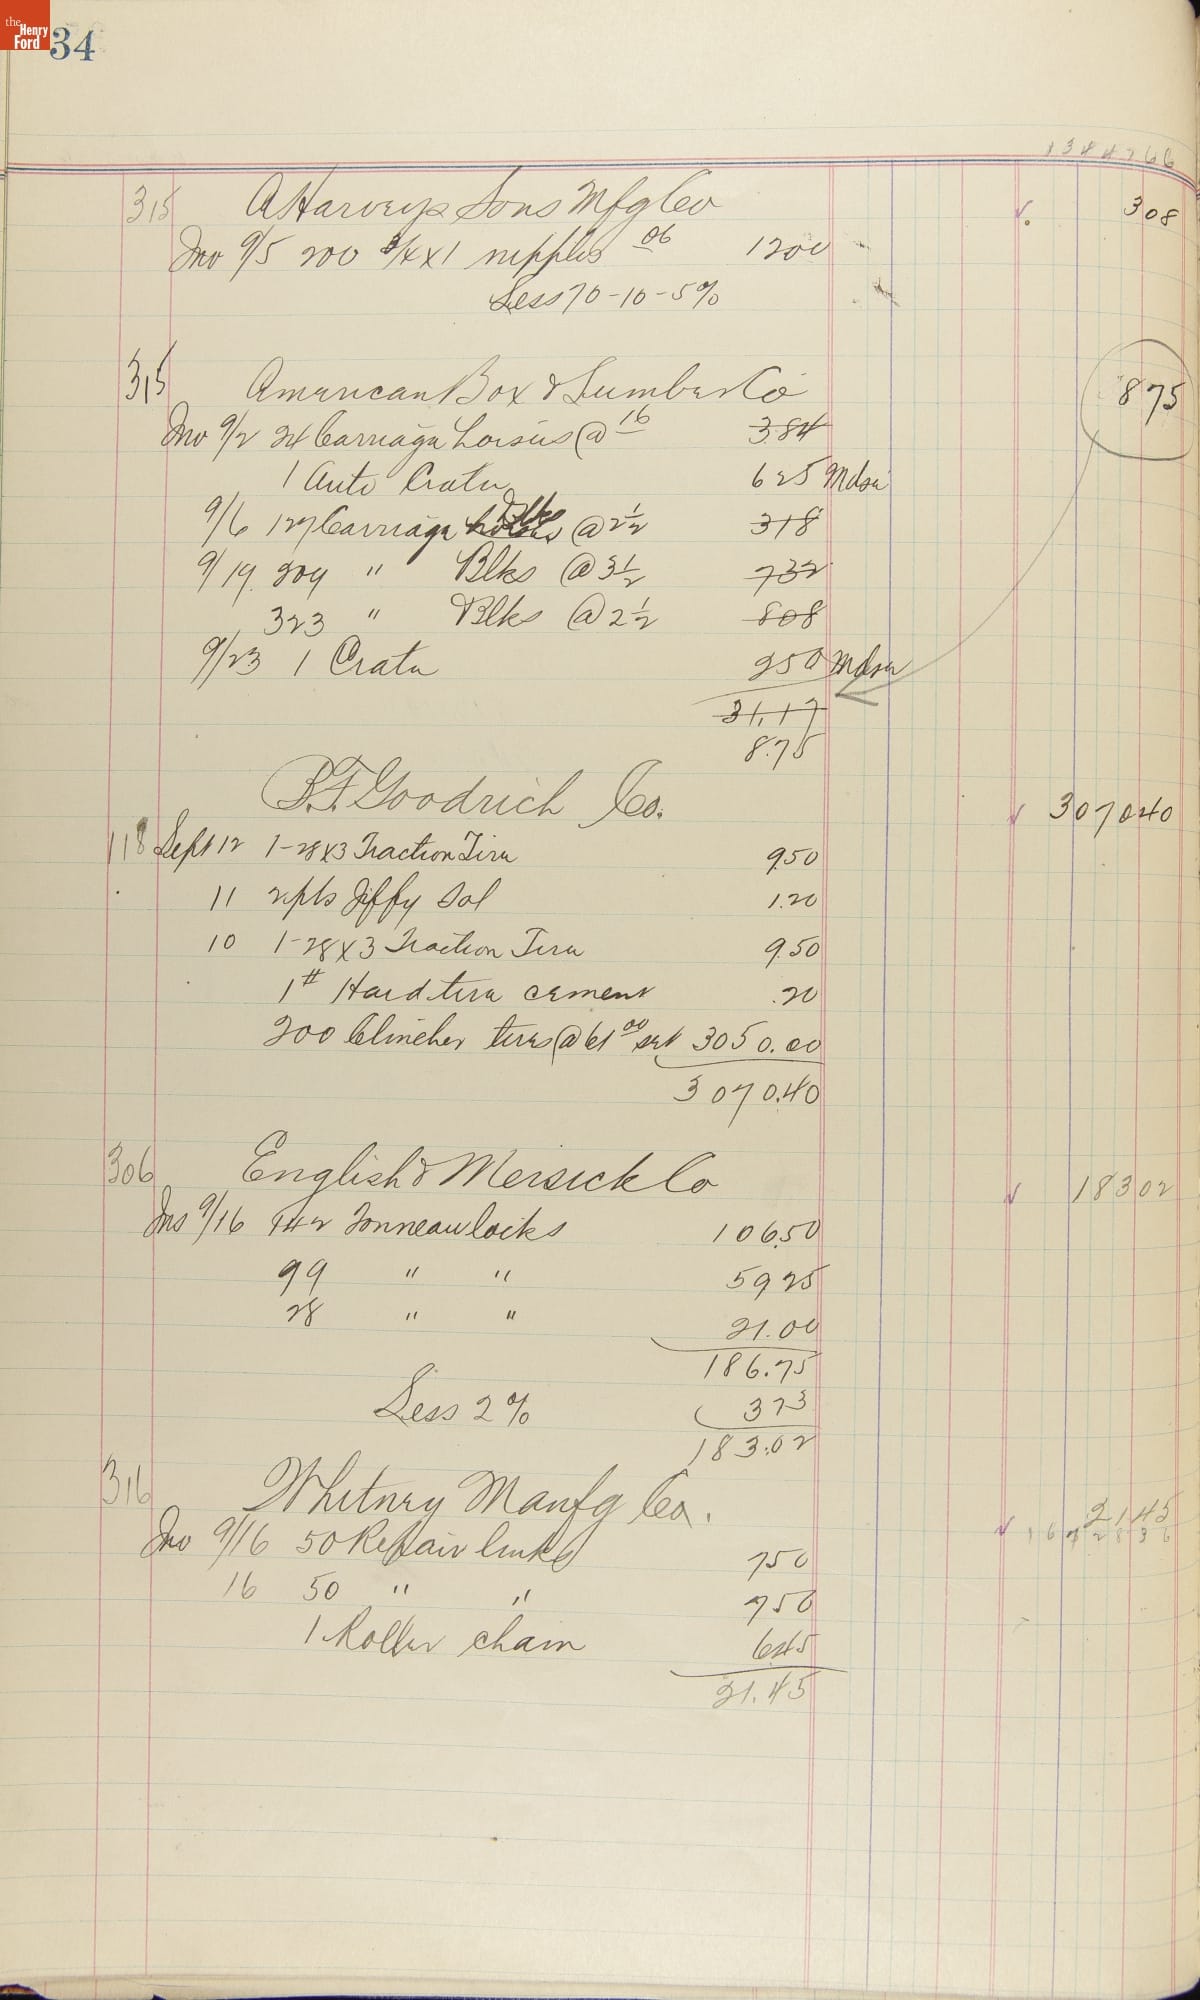 the Henry Ford
34
1344766
315 A Harveys Sons Mfg Co 308
Inv 9/5 200 3/4 x 1 nipples 06 1200
Less 70-10-5%
315 American Box & Lumber Co 875
Inv 9/2 24 Carriage horses @ 16 384
1 Auto Crate 625 Mdse
9/6 127 Carriage Blks @ 2 1/2 318
9/19 209 " Blks @ 3 1/2 732
323 " Blks @ 2 1/2 808
9/23 1 Crate 250 Mdse
31.17
8.75
B.F. Goodrich Co. 307040
118 Sept 12 1-28x3 Traction Tire 9.50
11 2 pts Jiffy Sol 1.20
10 1-28x3 Traction Tire 9.50
1# Hard tire cement .20
200 Clincher tires @ 61 00 set 3050.00
3070.40
306 English & Mersick Co 18302
Inv 9/16 142 Tonneau locks 106.50
99 " " 5925
28 " " 21.00
186.75
Less 2% 373
183.02
316 Whitney Manfg Co. 2145
Inv 9/16 50 Repair links 750
1672836
16 50 " " 750
1 Roller chain 645
21.45